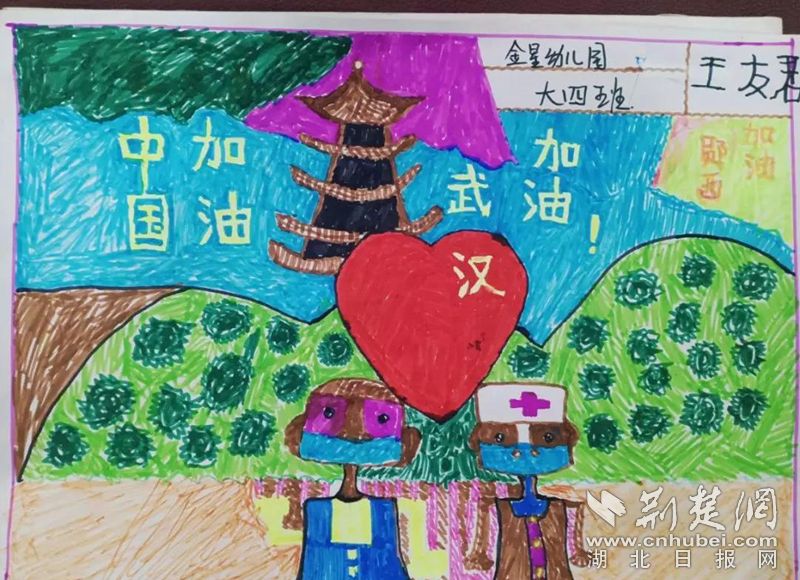 金星幼儿园
大四班
王友君
中国
加油
武汉
加油!
加油
郧西
荆楚网
www.cnhubei.com
湖北日报网